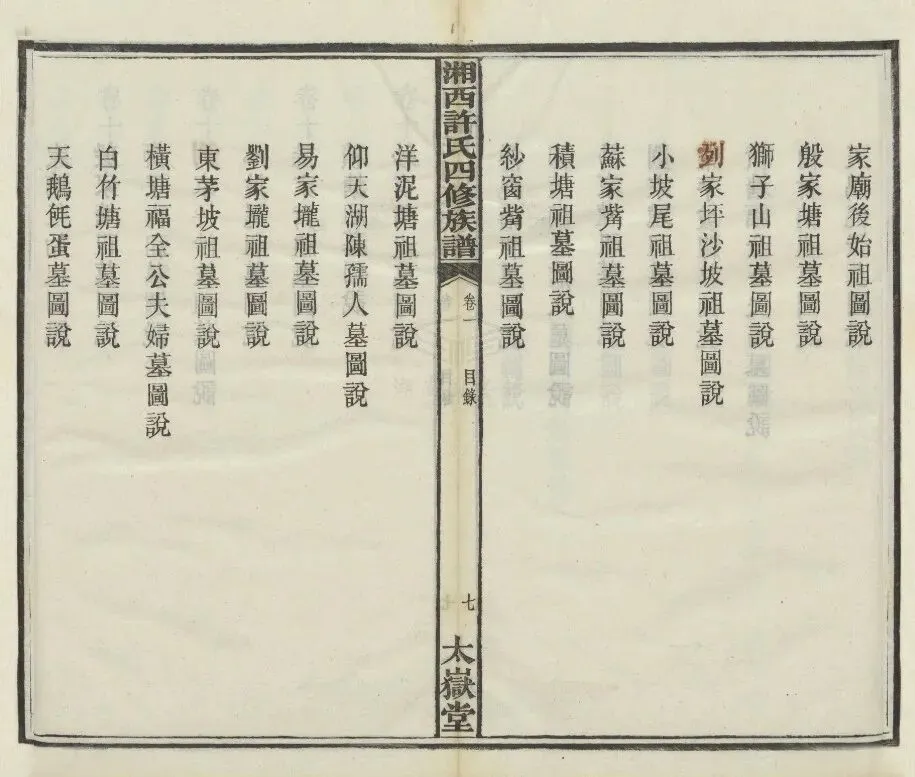 家廟後始祖圖說
般家塘祖墓圖說
獅子山祖墓圖說
列家坪沙坡祖墓圖說
小坡尾祖墓圖說
蘇家嵴祖墓圖說
積塘祖墓圖說
紗窗嵴祖墓圖說
湘西許氏四修族譜
卷一
目錄
七
太嶽堂
洋泥塘祖墓圖說
仰天湖陳孺人墓圖說
易家壠祖墓圖說
劉家壠祖墓圖說
東茅坡祖墓圖說
橫塘福全公夫婦墓圖說
白竹塘祖墓圖說
天鵝蛋墓圖說